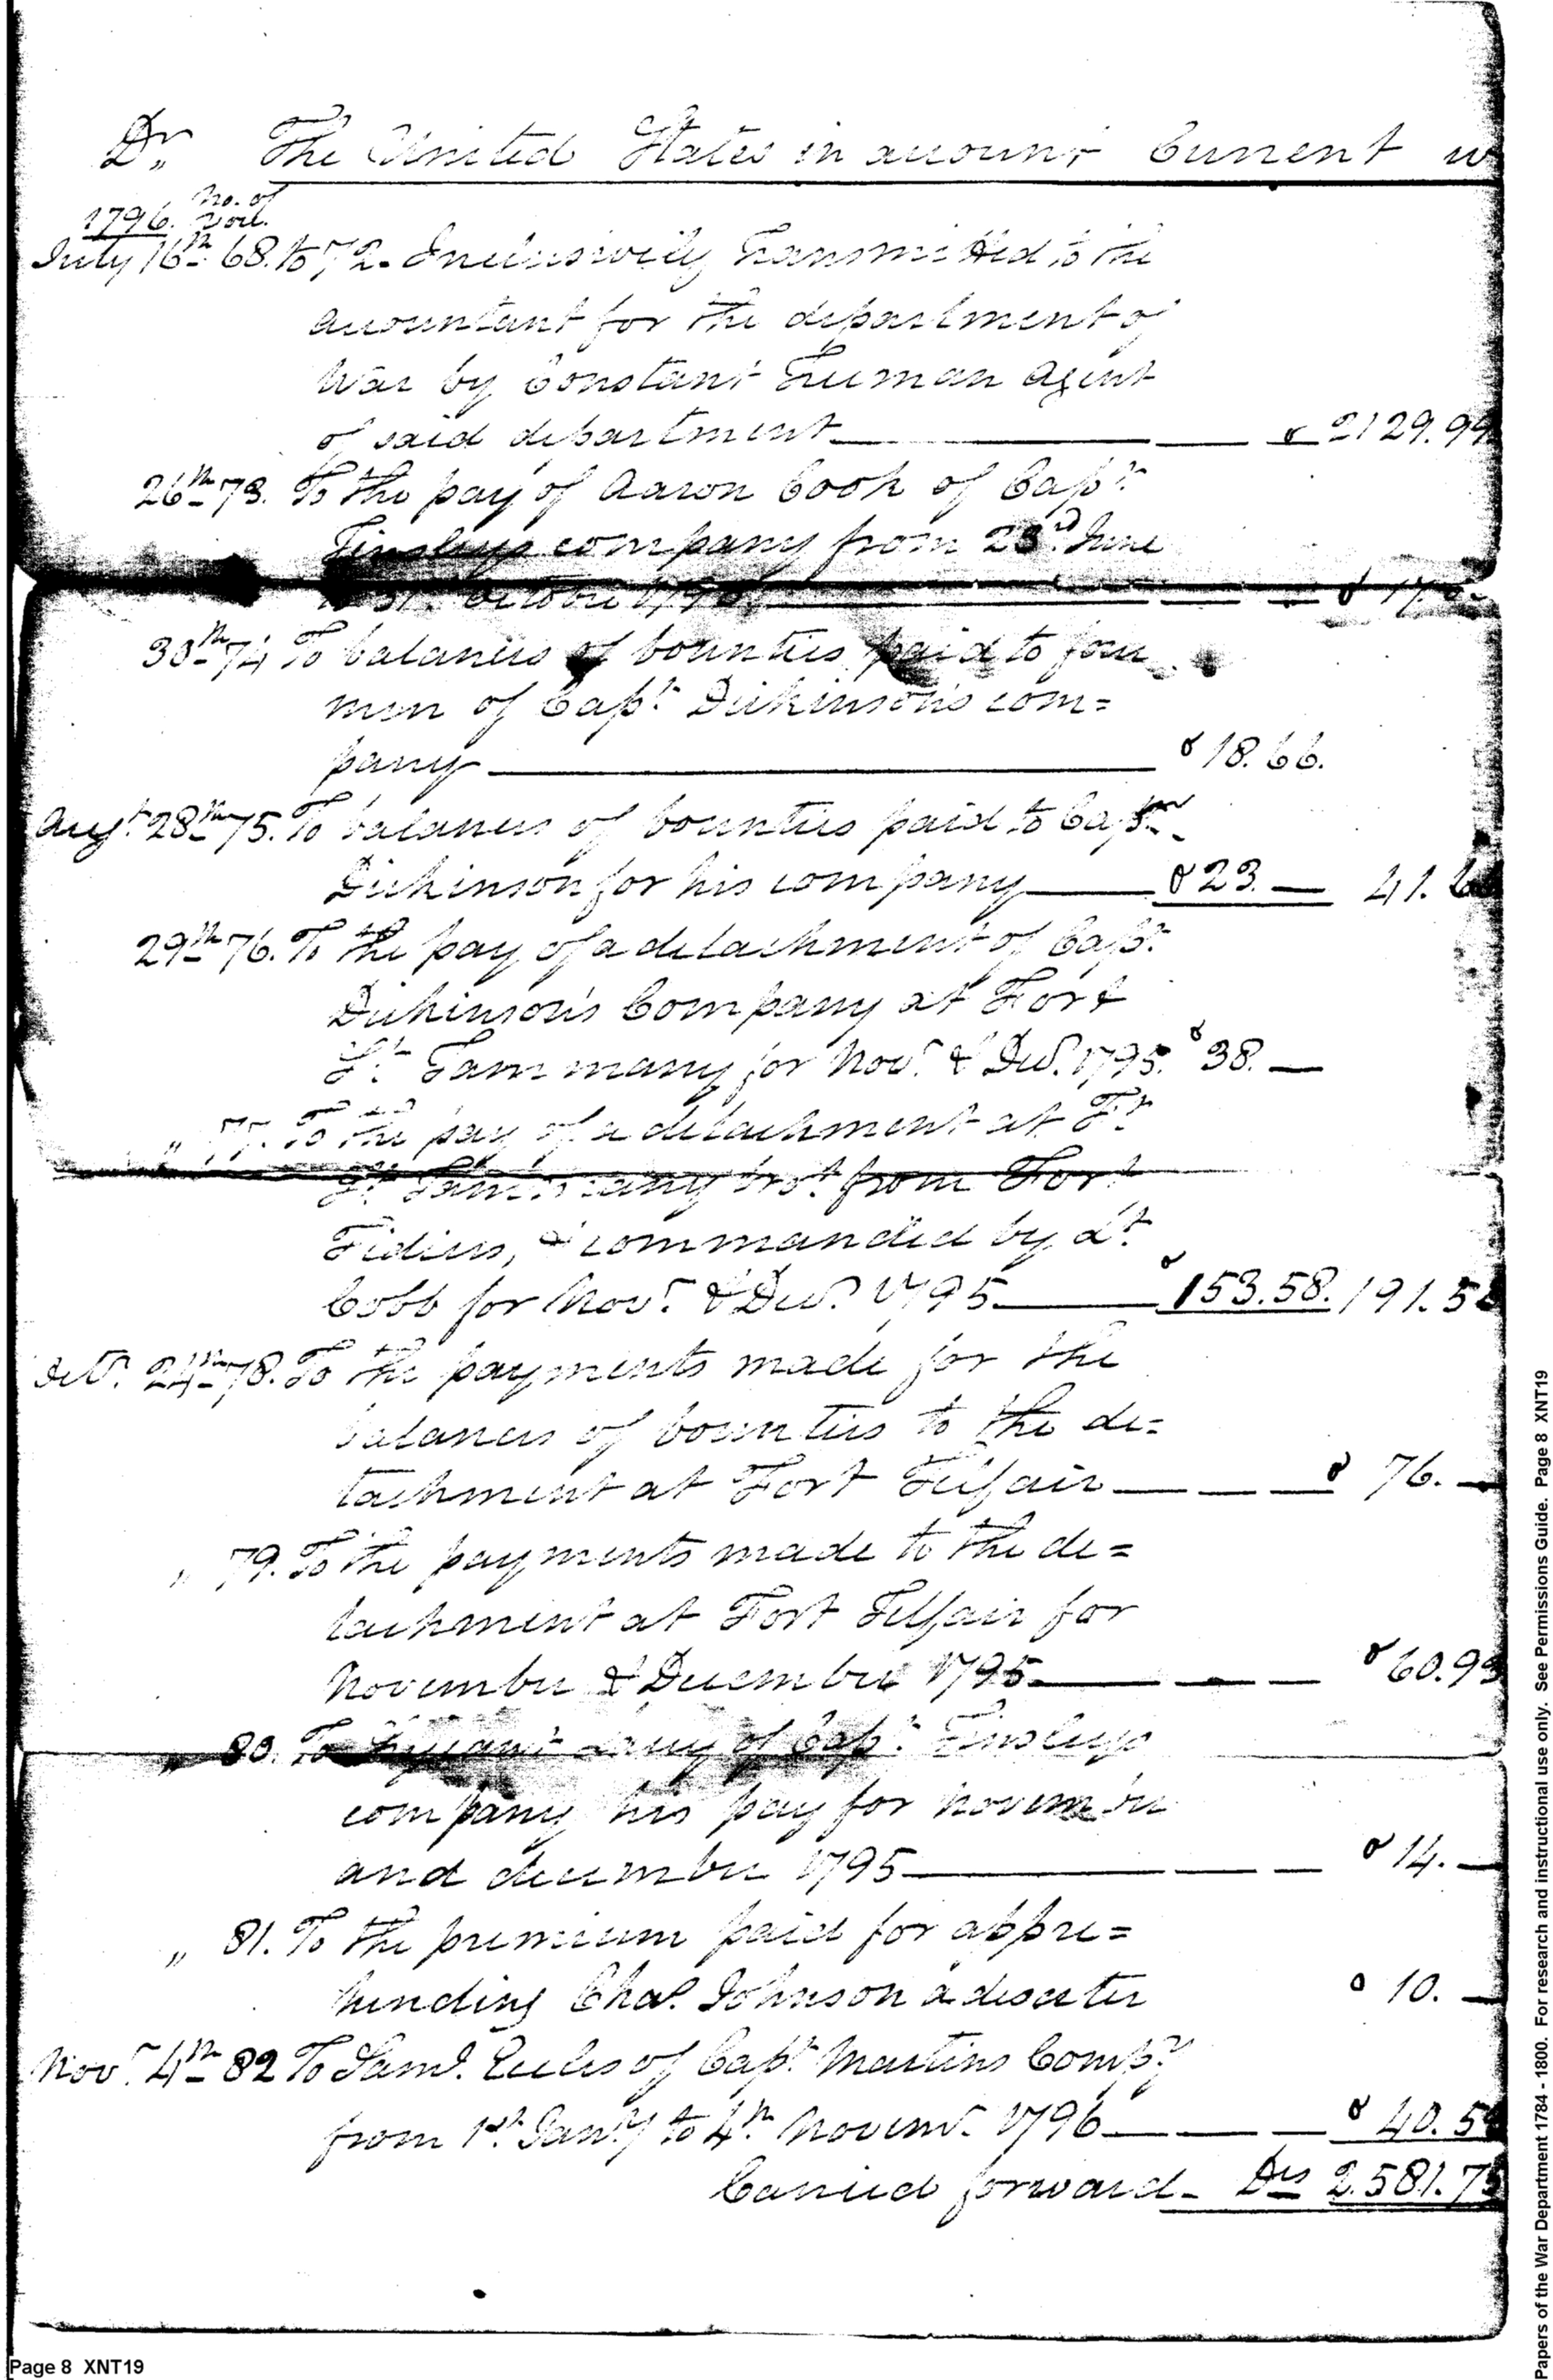 Dr,, The United States in account Current w
1796. No. of Vou.
July 16th 68. to 72. Inclusively Transmitted to the
accountant for the department of
War by Constant Freeman Agent
of said department $ 2129.99
26th 73. To the pay of Aaron Cook of Capt.
Tinsleys company from 23rd. June
to 31st. October 179 $ 17.
30th 74 To balances of bounties paid to four
men of Capt. Dickinson's com=
pany $ 18.66.
Augt. 28th 75. To balances of bounties paid to Capt.
Dickinson for his company $ 23. — 41.
29th 76. To the pay of a detachment of Capt.
Dickinson's Company at Fort
St. Tammany for Novr. & Decr. 1795. $ 38. —
,, 77. To the pay of a detachment at Ft.
St. Tammany from Fort
Fidius, & commanded by Lt.
Cobb for Novr. & Decr. 1795 $ 153.58. 191.58
Octr. 24th 78. To the payments made for the
balances of bounties to the de=
tachment at Fort Telfair $ 76. —
,, 79. To the payments made to the de=
tachment at Fort Telfair for
November & December 1795 $ 60.93
,, 80. To of Capt. Tinsleys
company his pay for November
and december 1795 $ 14. —
,, 81. To the premium paid for appre=
hending Chas. Johnson a deserter $ 10. —
Novr. 4th 82 To Saml. Eccles of Capt. Martins Compy
from 1st. Jany to 4th Novemr. 1796 $ 40.5
Carried forward - Drs 2.581.75
Page 8 XNT19
Papers of the War Department 1784 - 1800. For research and instructional use only. See Permissions Guide. Page 8 XNT19